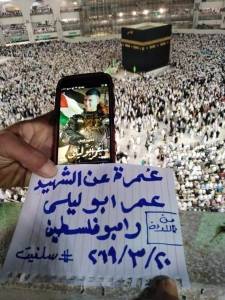 عمرة عن الشهيد
عمر ابو ليلى
رامبو فلسطين
٢٠١٩/٣/٢٠ # سلفيت